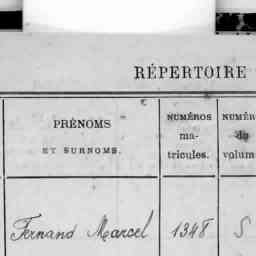 RÉPERTOIRE
PRÉNOMS
ET SURNOMS.
NUMÉROS
ma-
tricules.
NUMÉR
du
volum
Fernand Marcel
1348
S